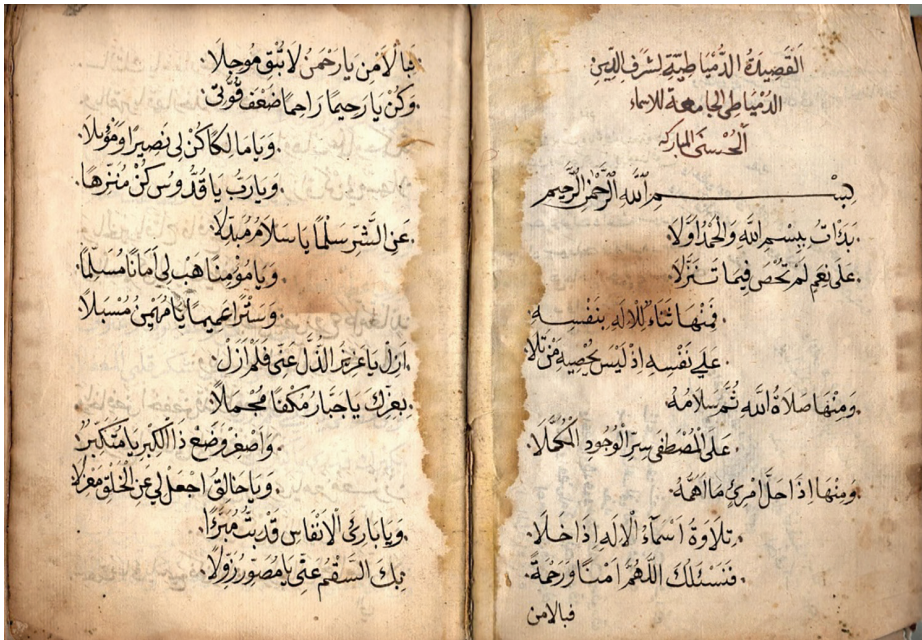 القَصِيدَةُ الدُّمْيَاطِيَّةُ لِشَرَفِ الدِّينِ
الدُّمْيَاطِي الجَامِعَة لِلاسماء
الْحُسْنَى المباركه
بِسْمِ اللَّهِ الرَّحْمَنِ الرَّحِيمِ
بَدَأتُ بِبِسْمِ اللَّهِ وَالْحَمْدُ اَوَّلَا
عَلَى نِعَمٍ لَمْ تُحْصَ فِيمَا تَنَزَّلَا
فَمِنْهَا ثَنَاءٌ لِلاِلَهِ بِنَفْسِهِ
عَلَي نَفْسِهِ اِذْ لَيْسَ يُحْصِيهِ مَنْ تَلَا
وَمِنْهَا صَلَاةُ اللَّهِ ثُمَّ سَلَامُهُ
عَلَى الْمُصْطَفَى سِرِّ الْوُجُودِ الْمُكَمَّلَا
وَمِنْهَا اِذَا حَلَّ امْرِئٍ مَا اَهَمَّهُ
تِلَاوَةُ اَسْمَآءِ الاِلَهِ اِذَا خَلَا
فَنَسْئَلُكَ اللَّهُمَّ اَمْنًا وَرَحْمَةً
فبالامن
فَبِالاَمْنِ يَا رَحْمَنُ لَا تُبْقِ مُوجِلًا
وَكُنْ يَا رَحِيمًا رَاحِمًا ضَعْفَ قُوَّتِى
وَيَا مَالِكًا كُنْ لِى نَصِيرًا وَمَوْئِلَا
وَيَا رَبُّ يَا قُدُّوسُ كُنْ مُنَزِّهًا
عَنِ الشَّرِّ سَلِّمْنَا يَا سَلَامُ مُبَدِّلَا
وَيَا مُؤْمِنًا هَبْ لِى اَمَانًا مُسَلِّمًا
وَسَتْرًا عَمِيمًا يَا مُهَيْمِنُ مُسْبَلًا
اَزِلْ يَا عَزِيزُ الذُّلَّ عَنِّى فَلَمْ اَزَلْ
بِعِزِّكَ يَا جَبَّارُ مَكْفِيًا مُجَمَّلًا
وَاَصْغِرْ وَضَعْ ذَا الْكِبْرِ يَا مُتَكَبِّرُ
وَيَا خَالِقُ اجْعَلْ لِي عَنِ الْخَلْقِ مَعْزِلًا
وَيَا بَارِئَ الْاَنْفَاسِ قَدْ بِتُّ مُبَرَّءًا
بِكَ السُّقْمُ عَنِّى يَا مُصَوِّرُ زُوِّلَا